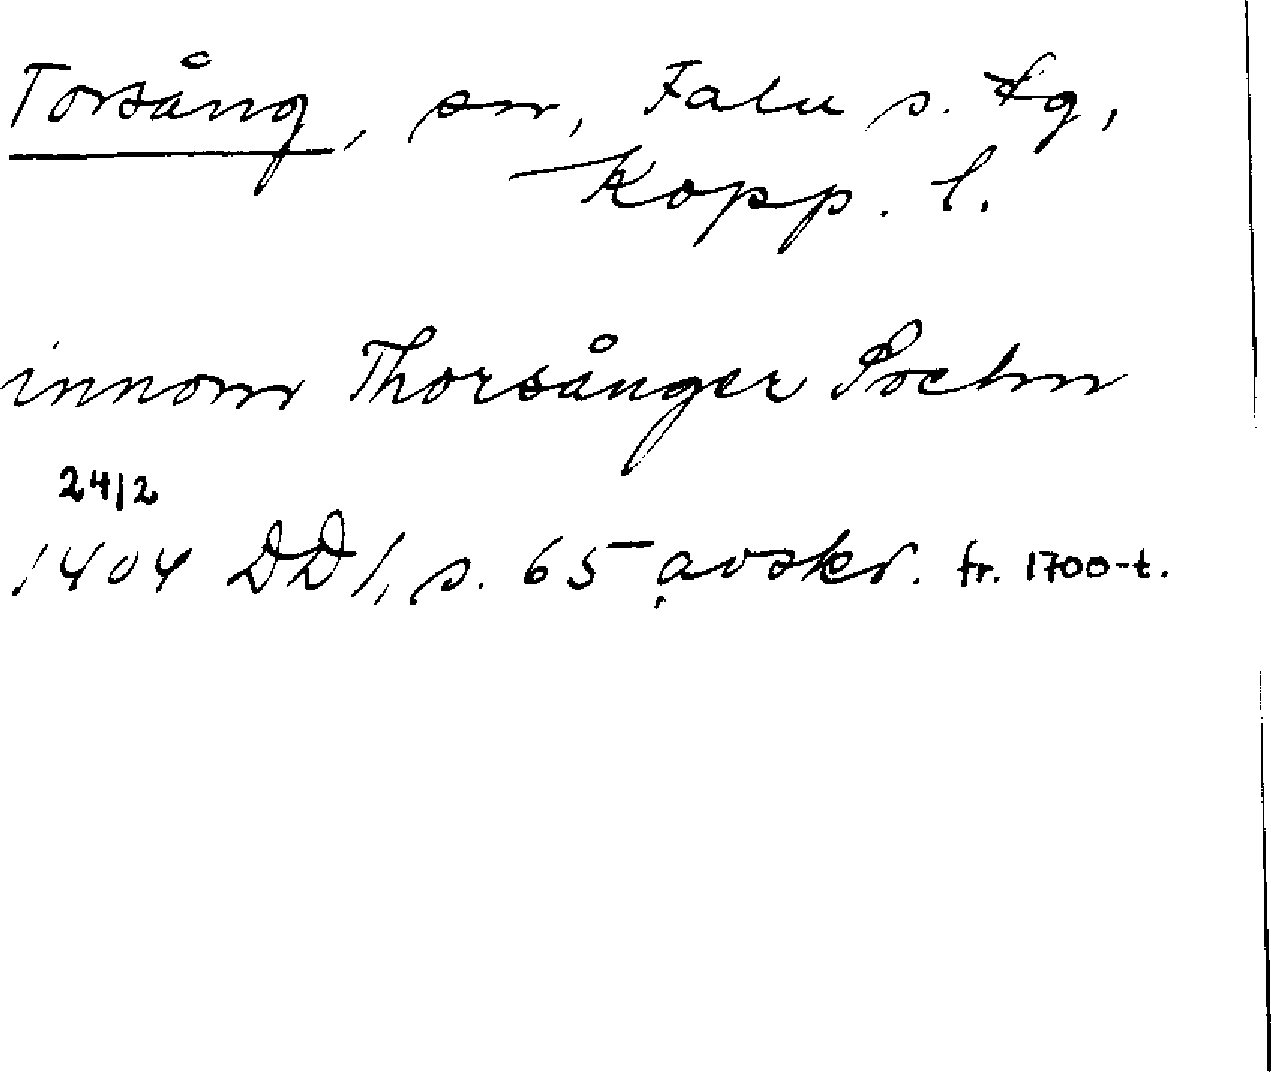 Torsång, sn, Falu s. tg,
Kopp. l.
innom Thorsånger Sochn
24/2
1404 DD 1, s. 65, avskr. fr. 1700-t.